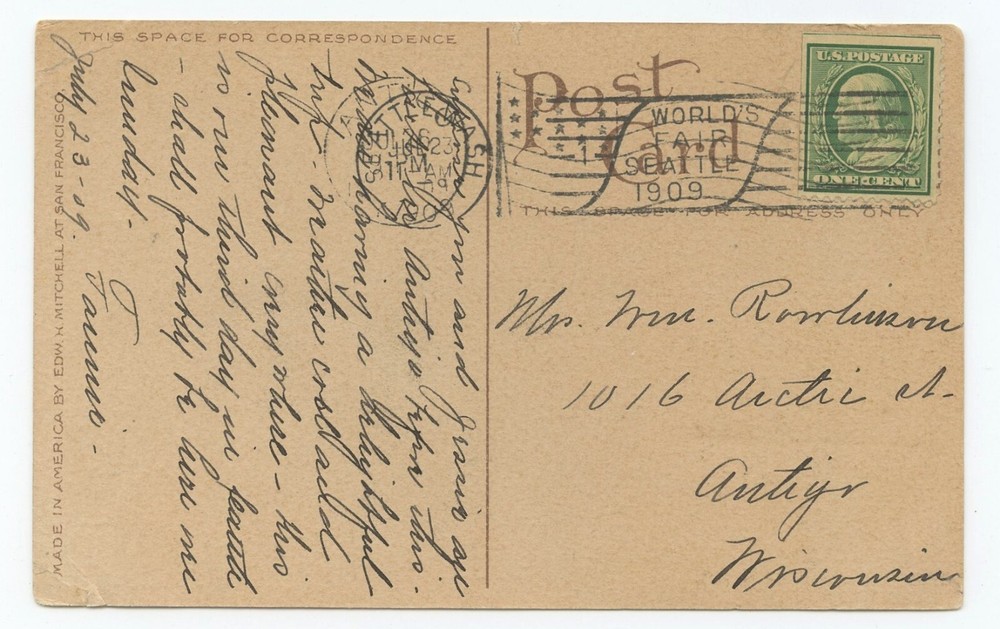 THIS SPACE FOR CORRESPONDENCE
Post
Card
WORLD'S
FAIR
SEATTLE
1909
U.S. POSTAGE
ONE CENT
THIS SPACE FOR ADDRESS ONLY
MADE IN AMERICA BY EDW. H. MITCHELL AT SAN FRANCISCO
July 23-09.
you and Jessie
Antigo before this.
having a delightful
trip. weather cool and
pleasant everywhere - this
is our third day in Seattle
- shall probably be here till
Sunday.
Fannie -
Mrs. Wm. Rowlinson
1016 Arctic st.
Antigo
Wisconsin